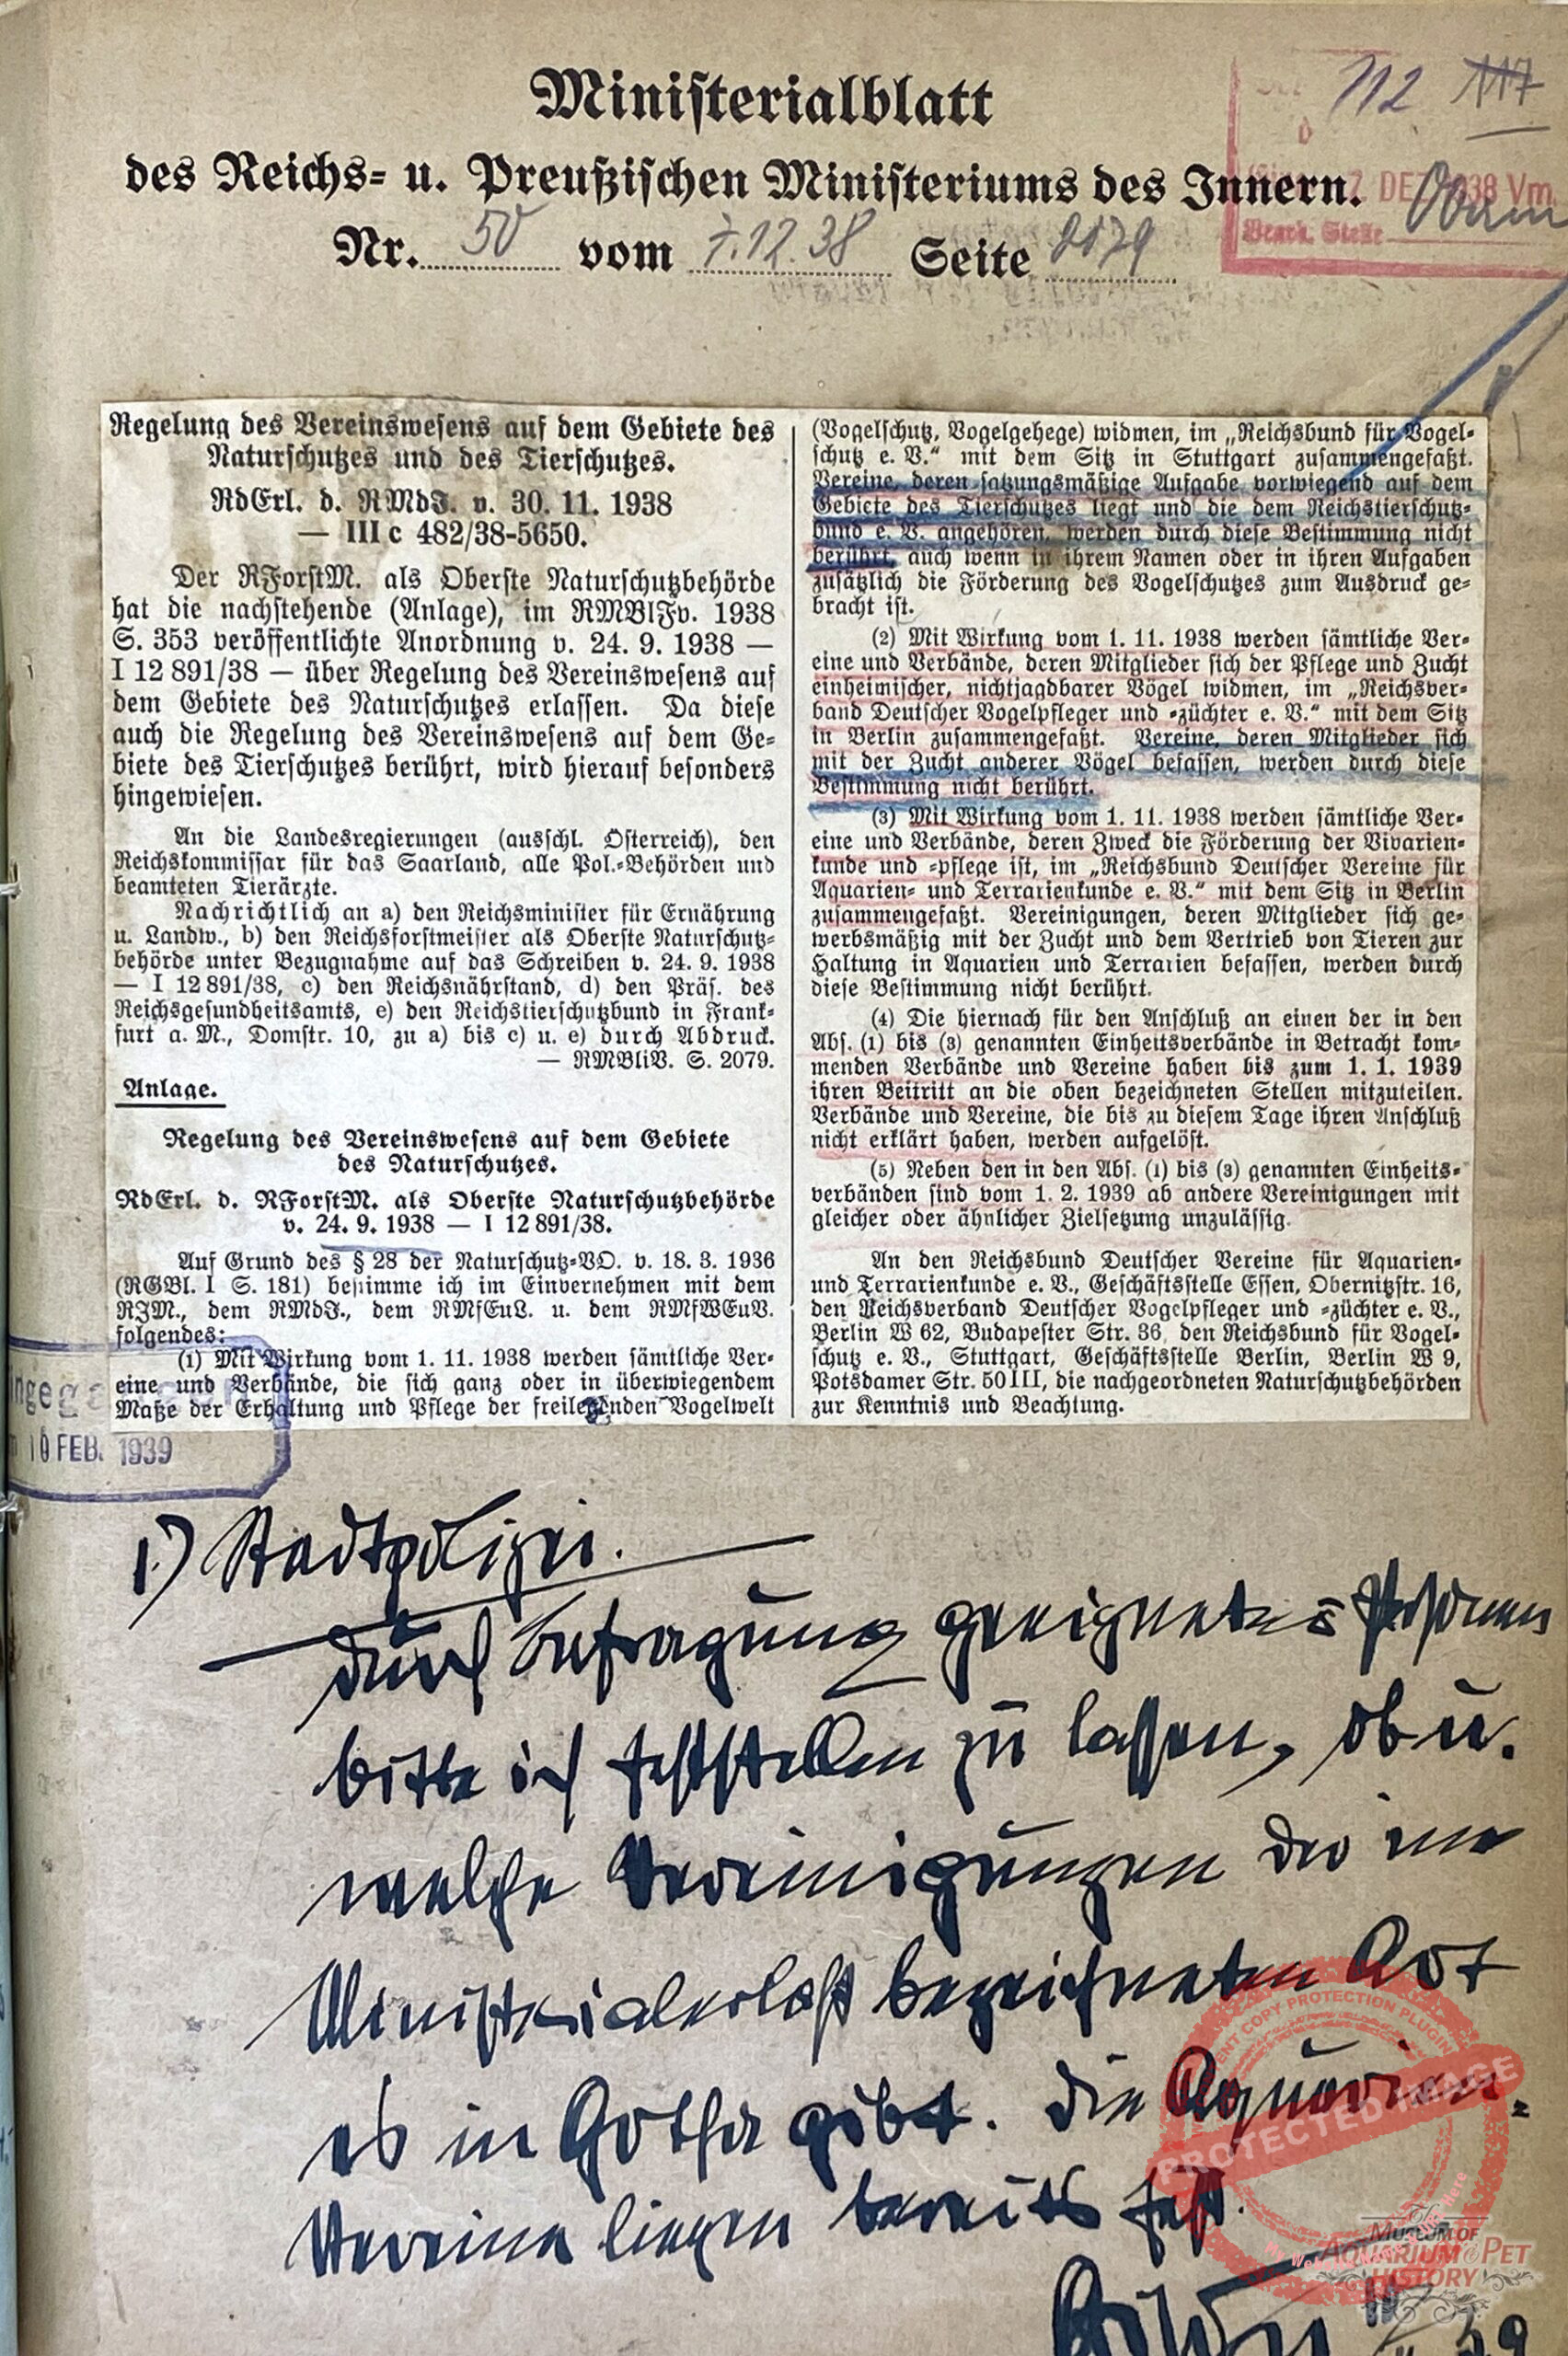 Ministerialblatt
des Reichs- u. Preußischen Ministeriums des Innern.
Nr. 50 vom 7.12.38 Seite 2179
112 117
7. DEZ. 1938 Vm.
Bearb. Stelle
Regelung des Vereinswesens auf dem Gebiete des
Naturschutzes und des Tierschutzes.
RdErl. d. RMdJ. v. 30. 11. 1938
— III c 482/38-5650.
Der RForstM. als Oberste Naturschutzbehörde
hat die nachstehende (Anlage), im RMBlFv. 1938
S. 353 veröffentlichte Anordnung v. 24. 9. 1938 —
I 12 891/38 — über Regelung des Vereinswesens auf
dem Gebiete des Naturschutzes erlassen. Da diese
auch die Regelung des Vereinswesens auf dem Ge-
biete des Tierschutzes berührt, wird hierauf besonders
hingewiesen.
An die Landesregierungen (ausschl. Österreich), den
Reichskommissar für das Saarland, alle Pol.-Behörden und
beamteten Tierärzte.
Nachrichtlich an a) den Reichsminister für Ernährung
u. Landw., b) den Reichsforstmeister als Oberste Naturschutz-
behörde unter Bezugnahme auf das Schreiben v. 24. 9. 1938
— I 12 891/38, c) den Reichsnährstand, d) den Präs. des
Reichsgesundheitsamts, e) den Reichstierschutzbund in Frank-
furt a. M., Domstr. 10, zu a) bis c) u. e) durch Abdruck.
— RMBliV. S. 2079.
Anlage.
Regelung des Vereinswesens auf dem Gebiete
des Naturschutzes.
RdErl. d. RForstM. als Oberste Naturschutzbehörde
v. 24. 9. 1938 — I 12 891/38.
Auf Grund des § 28 der Naturschutz-VO. v. 18. 3. 1936
(RGBl. I S. 181) bestimme ich im Einvernehmen mit dem
RJM., dem RMdJ., dem RMfEuL. u. dem RMfWEuV.
folgendes:
(1) Mit Wirkung vom 1. 11. 1938 werden sämtliche Ver-
eine und Verbände, die sich ganz oder in überwiegendem
Maße der Erhaltung und Pflege der freilebenden Vogelwelt
(Vogelschutz, Vogelgehege) widmen, im „Reichsbund für Vogel-
schutz e. V.“ mit dem Sitz in Stuttgart zusammengefaßt.
Vereine, deren satzungsmäßige Aufgabe vorwiegend auf dem
Gebiete des Tierschutzes liegt und die dem Reichstierschutz-
bund e. V. angehören, werden durch diese Bestimmung nicht
berührt, auch wenn in ihrem Namen oder in ihren Aufgaben
zusätzlich die Förderung des Vogelschutzes zum Ausdruck ge-
bracht ist.
(2) Mit Wirkung vom 1. 11. 1938 werden sämtliche Ver-
eine und Verbände, deren Mitglieder sich der Pflege und Zucht
einheimischer, nichtjagdbarer Vögel widmen, im „Reichsver-
band Deutscher Vogelpfleger und -züchter e. V.“ mit dem Sitz
in Berlin zusammengefaßt. Vereine, deren Mitglieder sich
mit der Zucht anderer Vögel befassen, werden durch diese
Bestimmung nicht berührt.
(3) Mit Wirkung vom 1. 11. 1938 werden sämtliche Ver-
eine und Verbände, deren Zweck die Förderung der Vivarien-
kunde und -pflege ist, im „Reichsbund Deutscher Vereine für
Aquarien- und Terrarienkunde e. V.“ mit dem Sitz in Berlin
zusammengefaßt. Vereinigungen, deren Mitglieder sich ge-
werbsmäßig mit der Zucht und dem Vertrieb von Tieren zur
Haltung in Aquarien und Terrarien befassen, werden durch
diese Bestimmung nicht berührt.
(4) Die hiernach für den Anschluß an einen der in den
Abs. (1) bis (3) genannten Einheitsverbände in Betracht kom-
menden Verbände und Vereine haben bis zum 1. 1. 1939
ihren Beitritt an die oben bezeichneten Stellen mitzuteilen.
Verbände und Vereine, die bis zu diesem Tage ihren Anschluß
nicht erklärt haben, werden aufgelöst.
(5) Neben den in den Abs. (1) bis (3) genannten Einheits-
verbänden sind vom 1. 2. 1939 ab andere Vereinigungen mit
gleicher oder ähnlicher Zielsetzung unzulässig.
An den Reichsbund Deutscher Vereine für Aquarien-
und Terrarienkunde e. V., Geschäftsstelle Essen, Obernitzstr. 16,
den Reichsverband Deutscher Vogelpfleger und -züchter e. V.,
Berlin W 62, Budapester Str. 36, den Reichsbund für Vogel-
schutz e. V., Stuttgart, Geschäftsstelle Berlin, Berlin W 9,
Potsdamer Str. 50 III, die nachgeordneten Naturschutzbehörden
zur Kenntnis und Beachtung.
10 FEB. 1939
1.) Stadtpolizei.
durch Befragung geeigneter Personen
bitte ich feststellen zu lassen, ob u.
welche Vereinigungen der im
Ministerialerlaß bezeichneten Art
es in Gotha gibt. Die Aquarien-
Vereine liegen bereits fest.
COPY PROTECTION PLUGIN
PROTECTED IMAGE
The
MUSEUM OF
AQUARIUM & PET
HISTORY